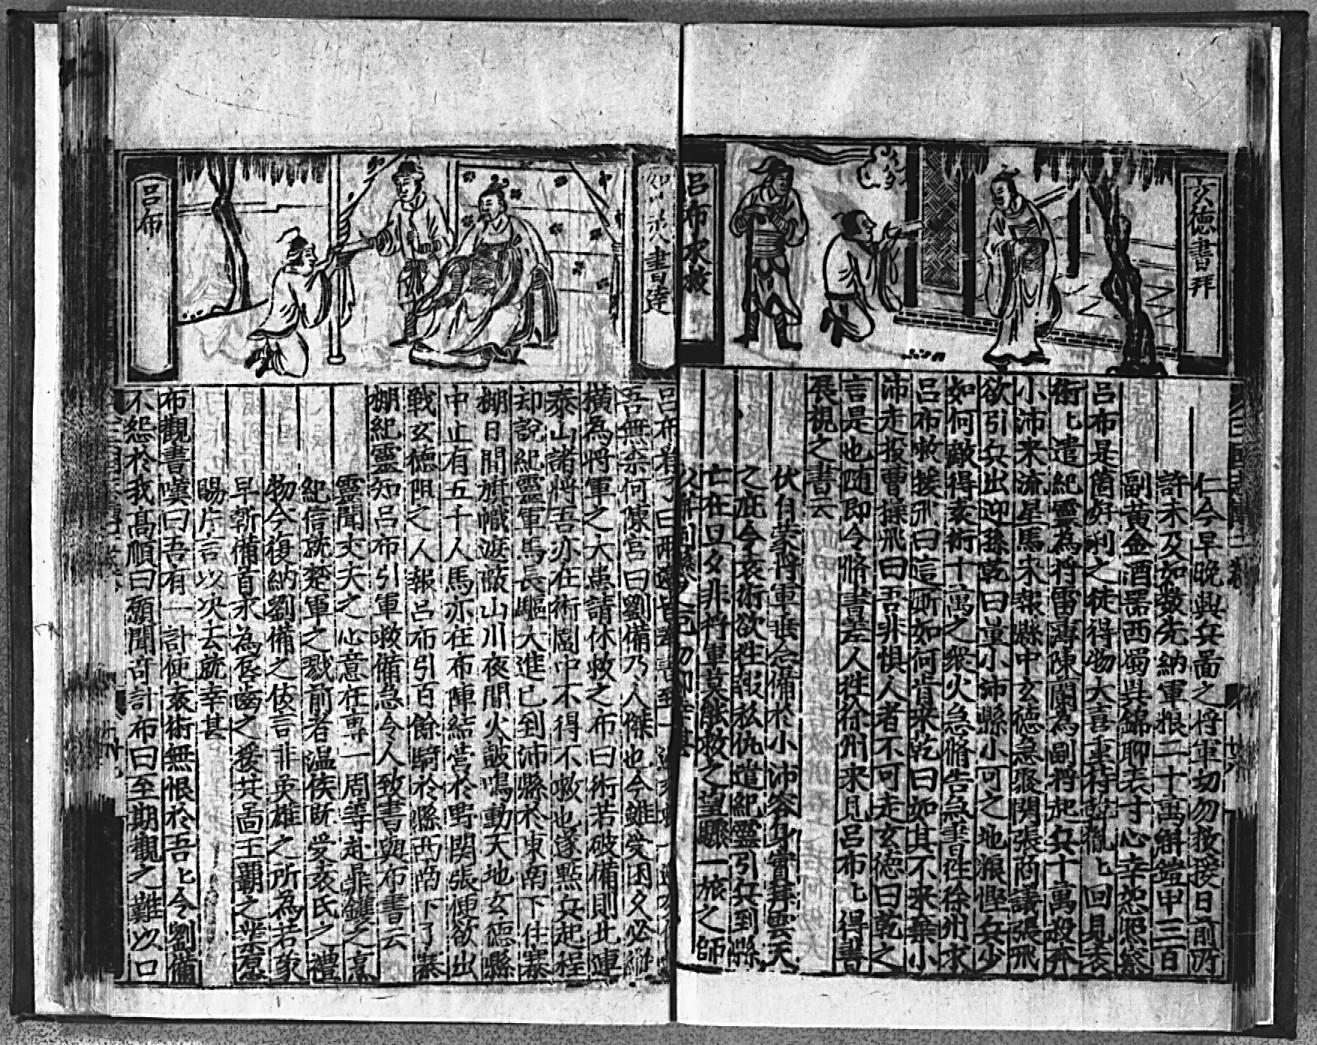 玄德書拜
呂布求救
仁今早晚興兵啚之将軍切勿救援日前所
許未及如数先納軍粮二十萬斛鎧甲三百
副黄金酒器西蜀異錦聊表寸心幸恕照察
呂布是箇好利之徒得物大喜重待韓胤上回見袁
術上遣紀靈為将雷薄陳蘭為副将起兵十萬殺奔
小沛来流星馬来報縣中玄德急聚関張商議張飛
欲引兵出迎孫乾曰量小沛縣小可之地粮慳兵少
如何敵得袁術十萬之衆火急脩告急書徃徐州求
呂布救援飛曰這厮如何肯来乾曰如其不来棄小
沛走投曹操飛曰吾非惧人者不可走玄德曰乾之
言是也随即令脩書差人徃徐州来見呂布上得書
展視之書云
伏自蒙将軍垂念備於小沛容身實拜雲天
之庇今袁術欲徃報私仇遣紀靈引兵到縣
亡在旦夕非将軍莫能救之望驅一旅之師
呂布
呂布看了曰
吾無奈何陳宮曰劉備乃人傑也今雖受困久必縱
横為将軍之大患請休救之布曰術若破備則北連
泰山諸将吾亦在術圖中不得不救也遂㸃兵起程
却說紀靈軍馬長驅大進已到沛縣於東南下住寨
棚日間旗幟遮蔽山川夜間火鼓鳴動天地玄德縣
中止有五千人馬亦在布陣結營於野関張便欲出
戰玄德阻之人報呂布引百餘騎於縣西南下了寨
棚紀靈知呂布引軍救備急令人致書與布書云
靈聞丈夫之心意在專一周苛赴鼎鑊之烹
紀信就楚軍之戮前者温侯既受袁氏之禮
物今復納劉備之佞言非英雄之所為若蒙
早斬備首永為唇齒之援共啚王覇之業願
賜片言以决去就幸甚
布觀書嘆曰吾有一計使袁術無恨於吾上令劉備
不怨於我高順曰願聞奇計布曰至期觀之難以口